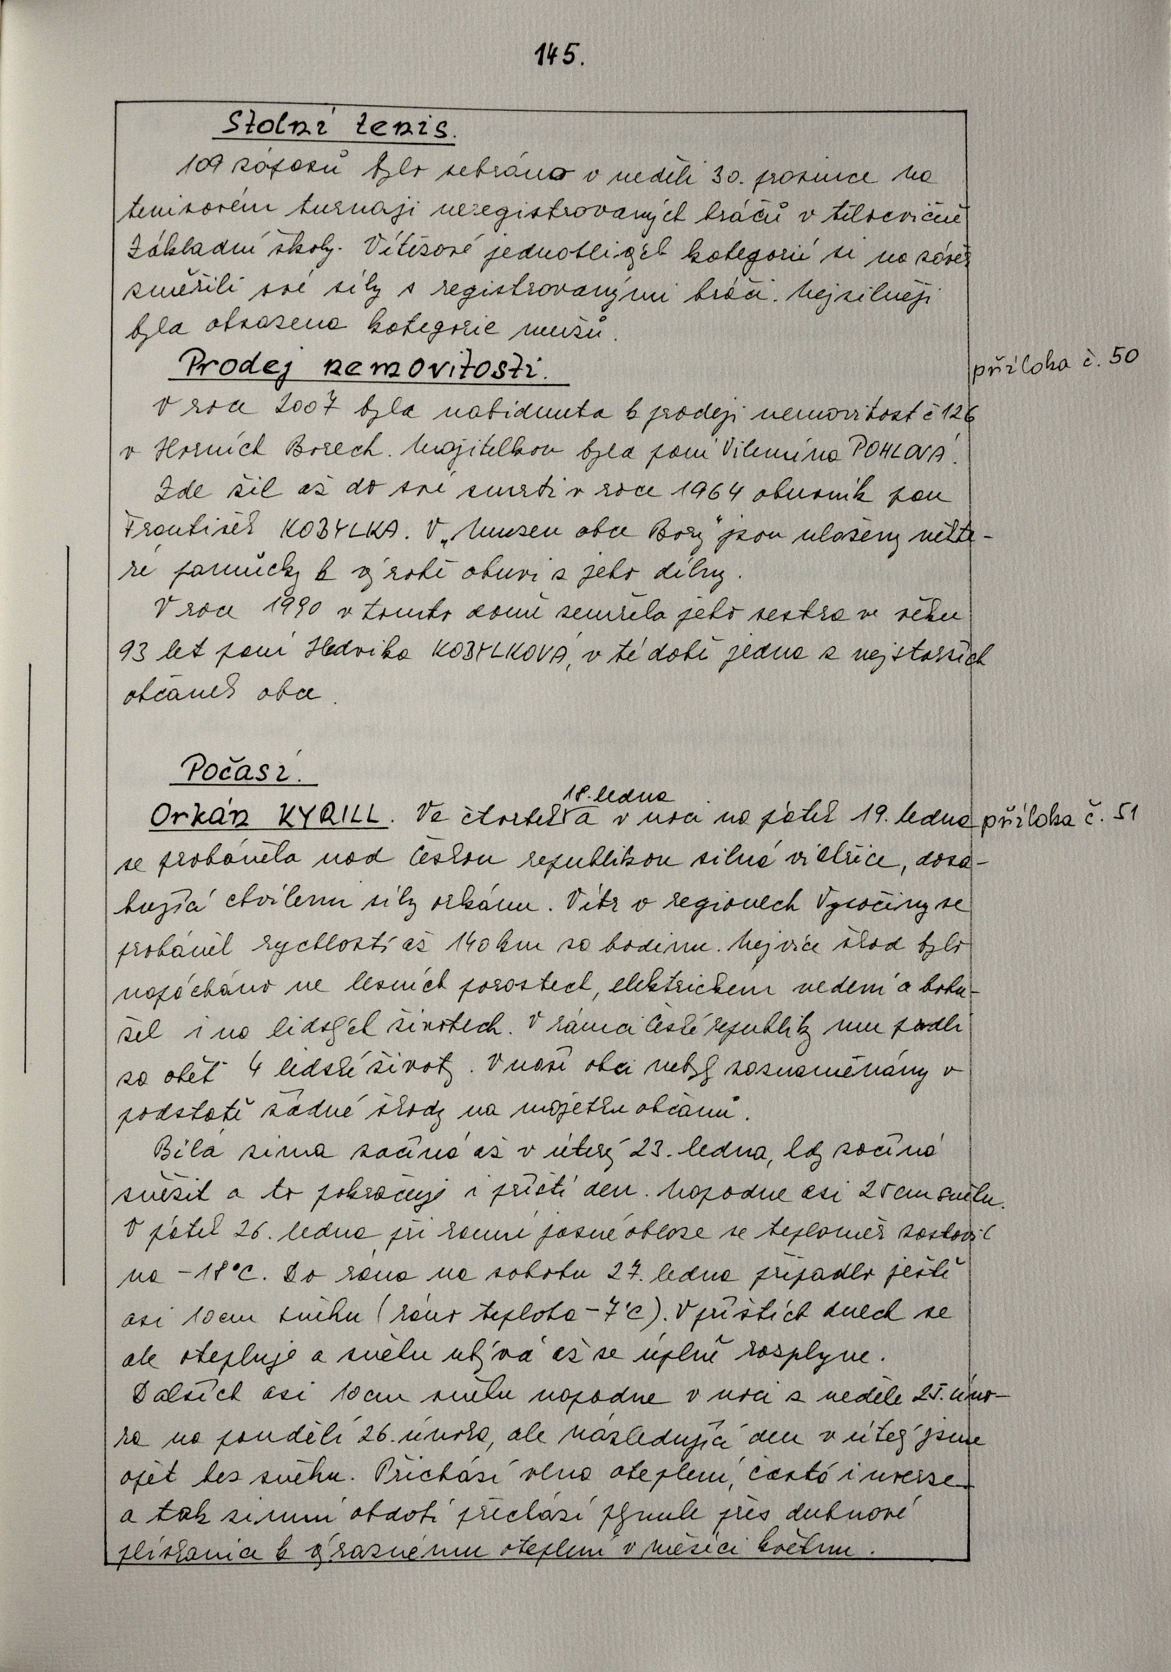 145.
Stolní tenis.
109 zápasů bylo sehráno v neděli 30. prosince na
tenisovém turnaji neregistrovaných hráčů v tělocvičně
Základní školy. Vítězové jednotlivých kategorií si na závěr
změřili své síly s registrovanými hráči. Nejsilněji
byla obsazena kategorie mužů.
Prodej nemovitosti.
příloha č. 50
V roce 2007 byla nabídnuta k prodeji nemovitost č 126
v Horních Borech. Majitelkou byla paní Vilemína POHLOVÁ.
Zde žil až do své smrti v roce 1964 obuvník pan
František KOBYLKA. V „Muzeu obce Bory" jsou uloženy někte-
ré pomůcky k výrobě obuvi z jeho dílny.
V roce 1990 v tomto domě zemřela jeho sestra ve věku
93 let paní Hedvika KOBYLKOVÁ, v té době jedna z nejstarších
občanek obce.
Počasí.
18. ledna
Orkán KYRILL. Ve čtvrtek a v noci na pátek 19. ledna
příloha č. 51
se proháněla nad Českou republikou silná vichřice, dosa-
hující chvílemi síly orkánu. Vítr v regionech Vysočiny se
proháněl rychlostí až 140 km za hodinu. Nejvíce škod bylo
napácháno ve lesních porostech, elektrickém vedení a bohu-
žel i na lidských životech. V rámci České republiky mu padli
za oběť 4 lidské životy. V naší obci nebyly zaznaměnány v
podstatě žádné škody na majetku občanů.
Bílá zima začíná až v úterý 23. ledna, kdy začíná
sněžit a to pokračuje i příští den. Napadne asi 25 cm sněhu.
V pátek 26. ledna při ranní jasné obloze se teploměr zastavil
na -18°C. Do rána na sobotu 27. ledna připadlo ještě
asi 10 cm sněhu (ráno teplota -7°C). V příštích dnech se
ale otepluje a sněhu ubývá až se úplně rozplyne.
Dalších asi 10 cm sněhu napadne v noci z neděle 25. úno-
ra na pondělí 26. února, ale následující den v úterý jsme
opět bez sněhu. Přichází vlna oteplení, častá inverze
a tak zimní období přechází plynule přes dubnové
plískanice k výraznému oteplení v měsíci květnu.